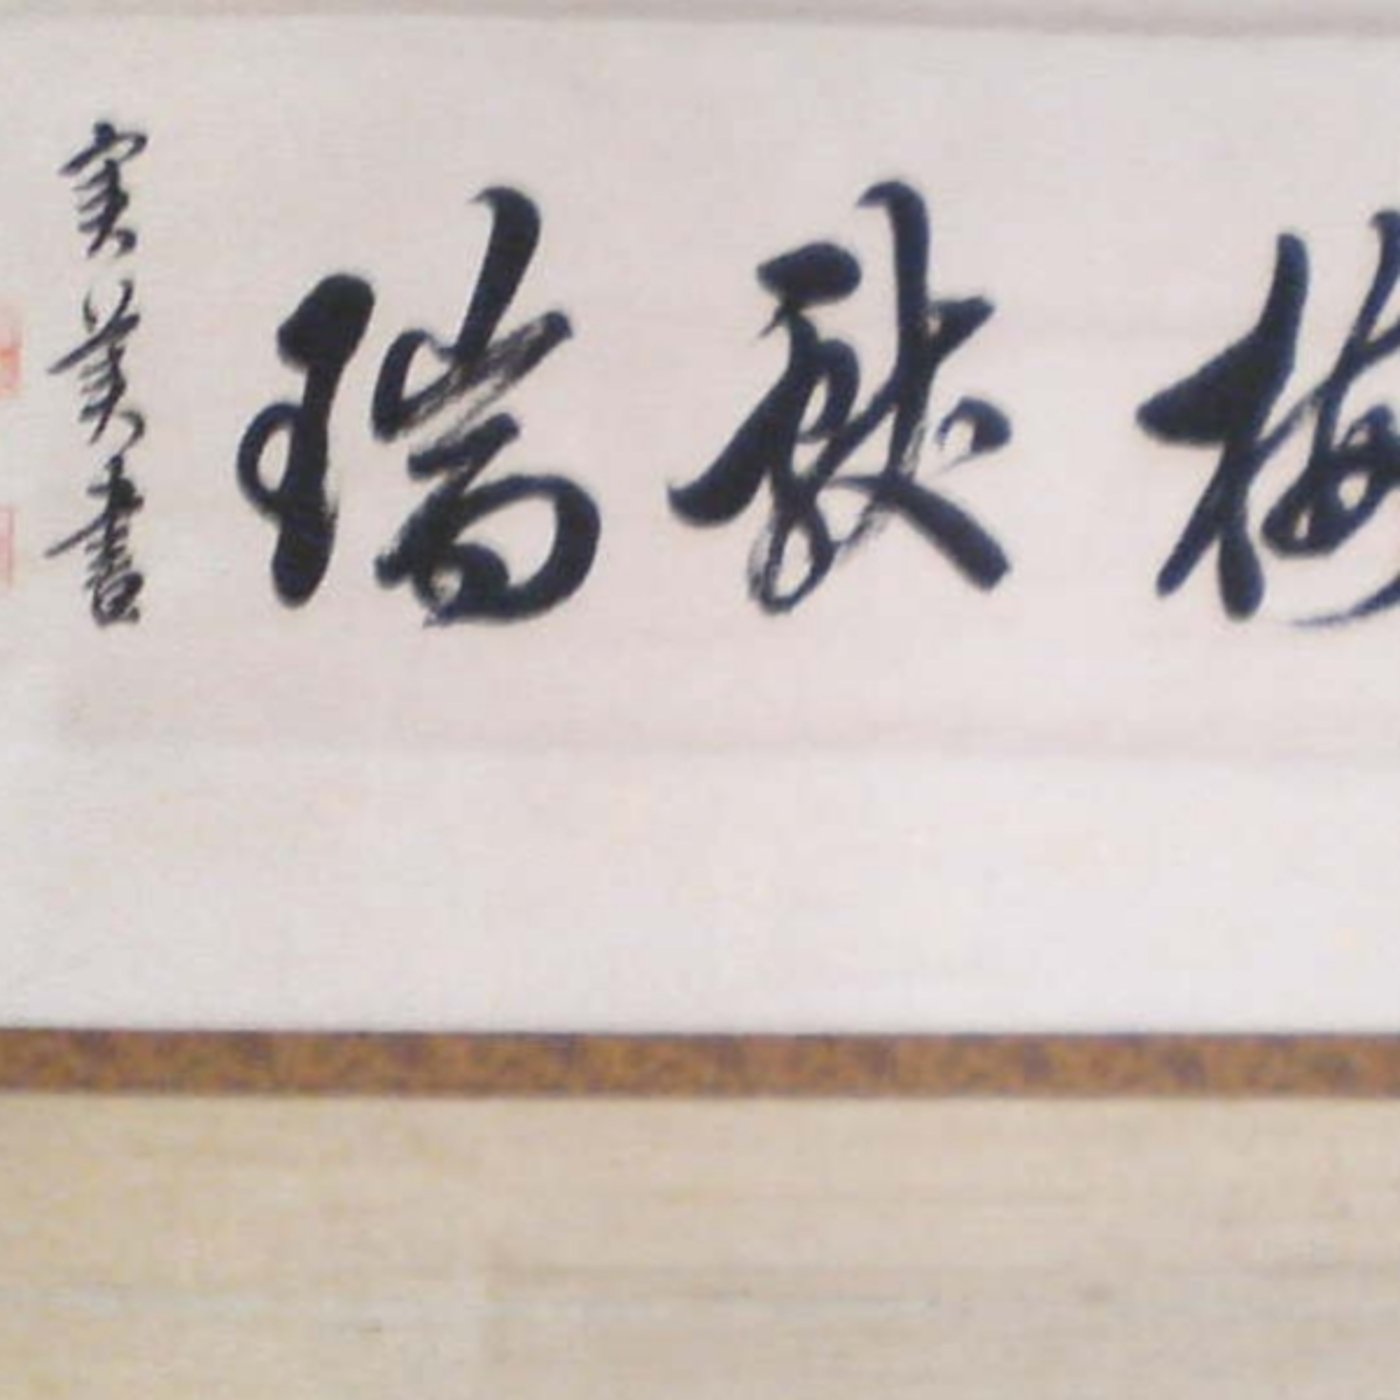 梅献瑞
実美書